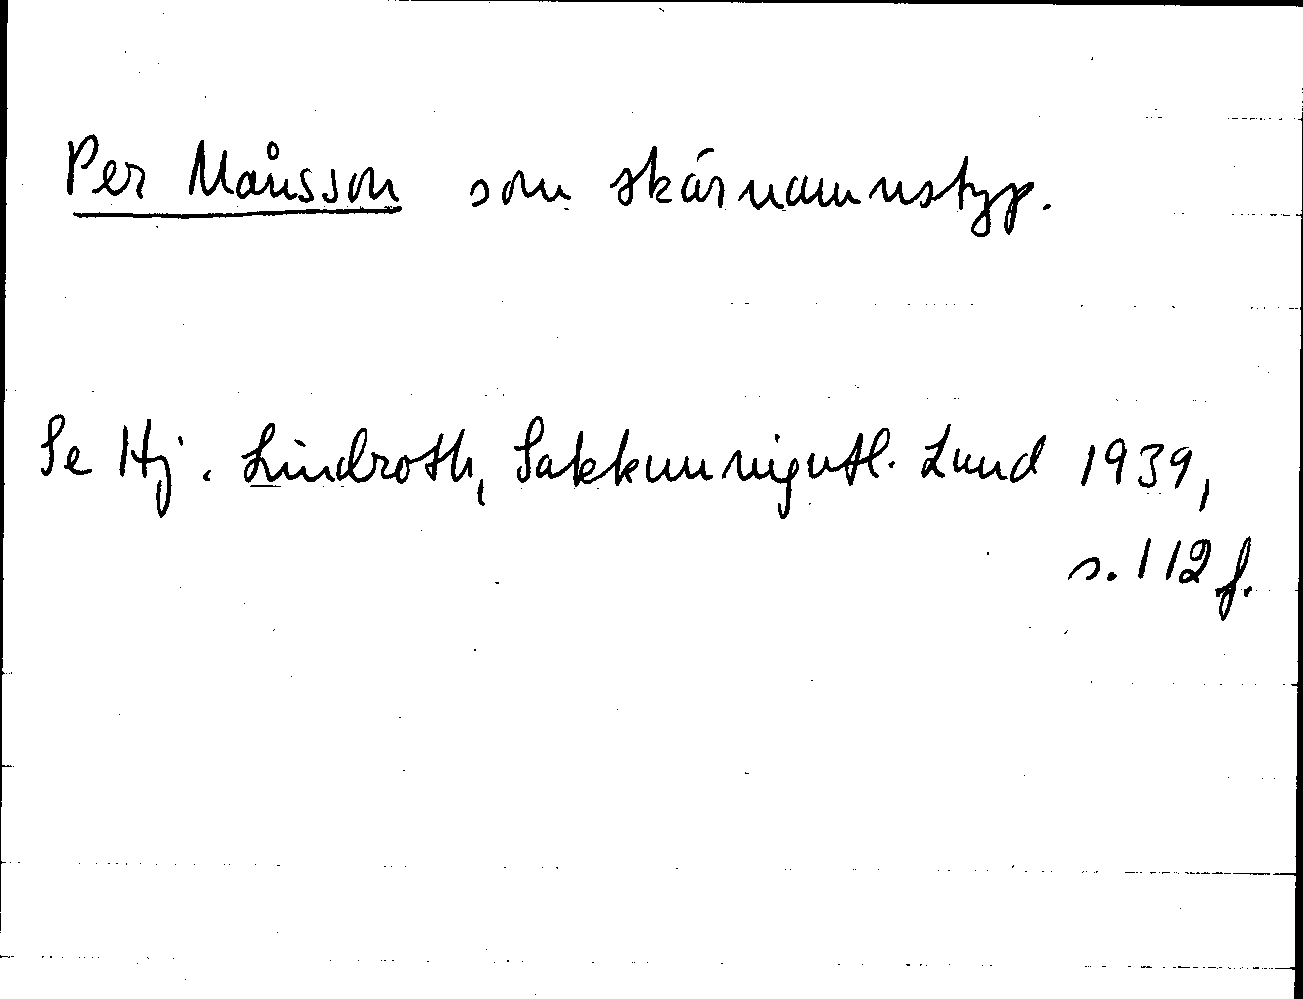 Per Månsson som skärnamnstyp.
Se Hj. Lindroth, Sakkunnigutl. Lund 1939,
s. 112 f.